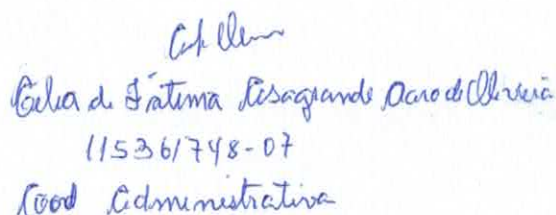 de Fátima Casagrande de Oliveira
115361748-07
Coord Administrativa